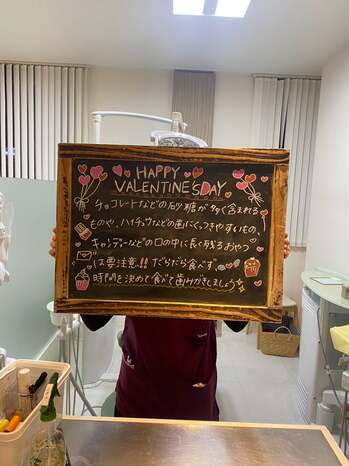 HAPPY
VALENTINE'S DAY
チョコレートなどの砂糖が多く含まれる
ものや、ハイチュウなどの歯にくっつきやすいもの
キャンディーなどの口の中に長く残るおやつ
は要注意!! だらだら食べず、
時間を決めて食べて歯みがきしましょう